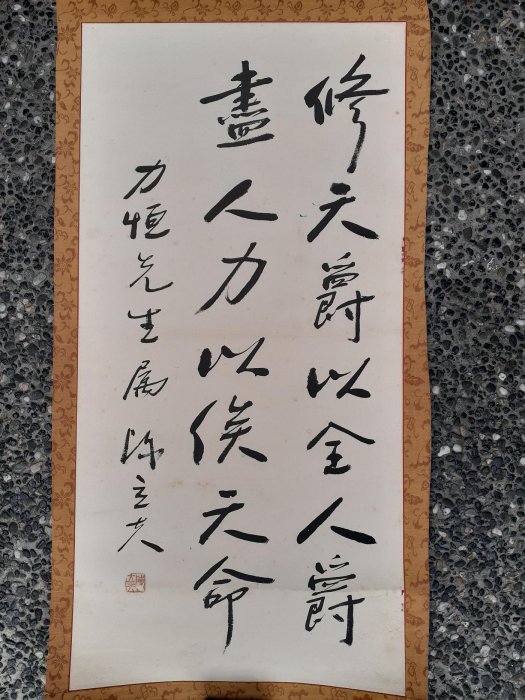 修天爵以全人爵
盡人力以俟天命
力恒先生属 陳立夫